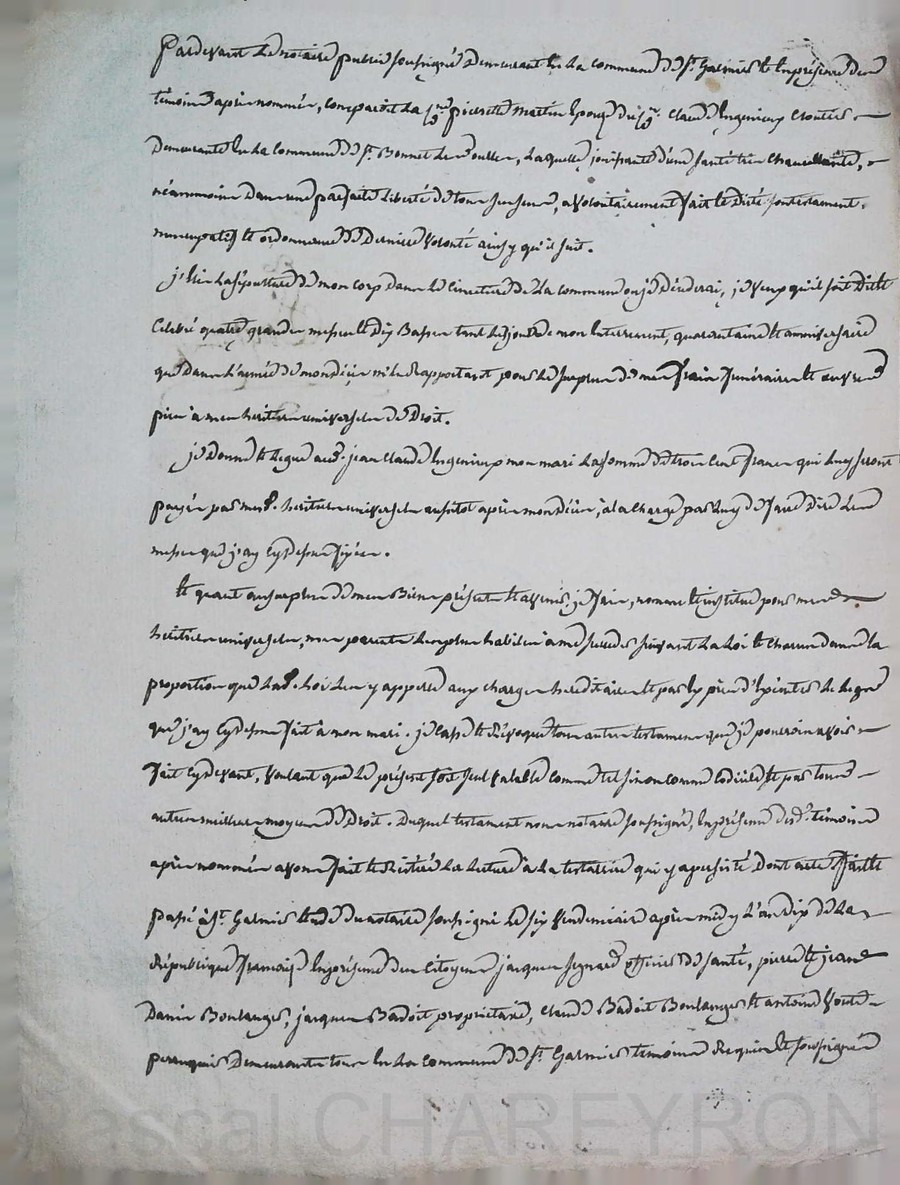 Pardevant le notaire public soussigné demeurant en la commune de St. Galmier et en présence des
témoins après nommés, comparoit la Cne. pierrette Martin épouze du Cn. Claude Ingenieux Cloutier
demeurante en la Commune de St. Bonnet les oulles, laquelle jouissante d'une santé très Chancellante,
néanmoins dans une parfaite liberté de tous ses sens, a volontairement fait et dicté son testament
nuncupatif et ordonnance de dernière volonté ainsy qu'il suit.
j'élis la sépulture de mon corp dans le Cimetière de la commune ou je décéderai, je veux qu'il soit dit et
Celébré quatre grandes messes et dix Basses tant le jour de mon enterrement, quarantaine et anniversaire
que dans l'année de mon décès m'en rapportant pour le surplus de mes frais funéraires et œuvres
pies à mes heritiers universels de Droit.
je donne et legue au d. jean Claude Ingenieux mon mari la somme de trois Cent francs qui luy seront
payés par mes d. heritiers universels aussitot après mon décès, à la charge par luy de faire dire les
messes que j'ay cy dessus fixées.
Et quant au surplus de mes Biens présents et avenir, je fais, nomme et institue pour mes
heritiers universels, mes parents les plus habiles à me succeder suivant la loi et chacun dans la
proportion que la d. loi les y appelle aux charges hereditaires et par exprès d'exécuter le legs
que j'ay cy dessus fait à mon mari. je casse et révoque tous autres testaments que je pourrois avoir
fait cy devant, voulant que le présent soit seul valable comme tel sinon comme codicile et par tous
autres meilleurs moyens de Droit. Duquel testament nous notaire soussigné, en présence des d. témoins
après nommés avons fait et réitéré la lecture à la testatrice qui y a persisté Dont acte fait et
passé à St. Galmier étude du notaire soussigné le six vendemiaire après midy l'an dix de la
République française en présence des Citoyens jacques officier de santé, pierre et jean
Boulanger, jacques Badoit proprietaire, Claude Badoit Boulanger et antoine
perruquier demeurants tous en la Commune de St. Galmier témoins requis et soussignés
Pascal CHAREYRON